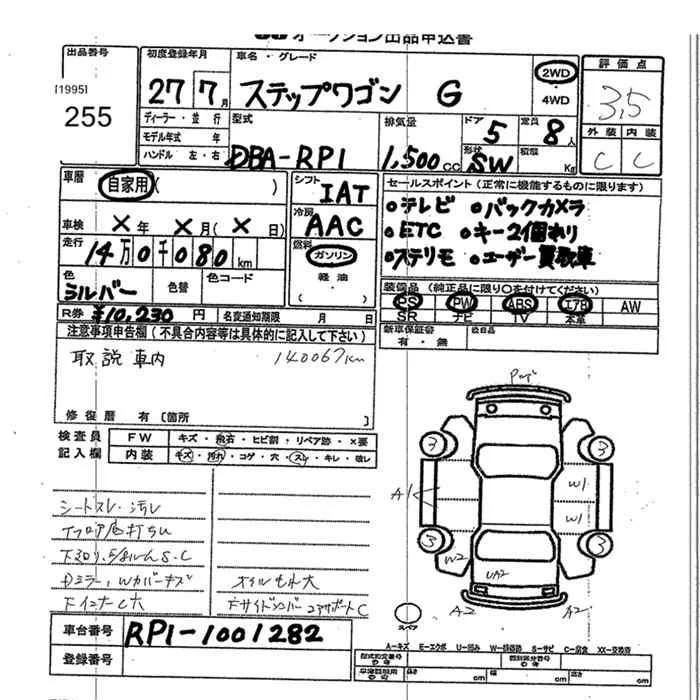 オークション出品申込書
出品番号
[1995]
255
初度登録年月
27 7月
車名・グレード
ステップワゴン G
2WD
・
4WD
評価点
3,5
外装 内装
C C
ディーラー・並行
モデル年式 年
ハンドル 左・右
型式
DBA-RP1
排気量
1,500 CC
ドア
5
定員
8人
形状
SW
積載
Kg
車歴
自家用( )
車検 × 年 × 月( × 日)
走行
14万0千080km
色
シルバー
色替
色コード
シフト
IAT
冷房
AAC
燃料
ガソリン
軽油
( )
セールスポイント(正常に機能するものに限ります)
○テレビ ○バックカメラ
○ETC ○キー2個有り
○ステリモ ○ユーザー買取車
装備品(純正品に限り○を付けてください)
PS PW ABS エアB AW
SR ナビ TV 本革
新車保証書
有・無
R券 ¥10,230 円
名変通知期限 月 日
注意事項申告欄(不具合内容等は具体的に記入して下さい)
取説車内 140067km
修復歴 有〔箇所 〕
検査員
記入欄
FW キズ・飛石・ヒビ割・リペア跡・×要
内装 キズ・汚れ・コゲ・穴・スレ・キレ・破レ
シートスレ・汚レ
フロア尾打ち
Dミラー、Wカバーキズ
オイルもれ大
下インナーC穴
下サイドメンバー コアサポートC
3 3
W1
A1
W1
3 3
W2
UA2
A2 A2
スペア
車台番号 RP1-1001282
登録番号
A-キズ E-エクボ U-凹み W-補修跡 S-サビ C-腐食 XX-交換済
cm 幅 cm 高さ cm